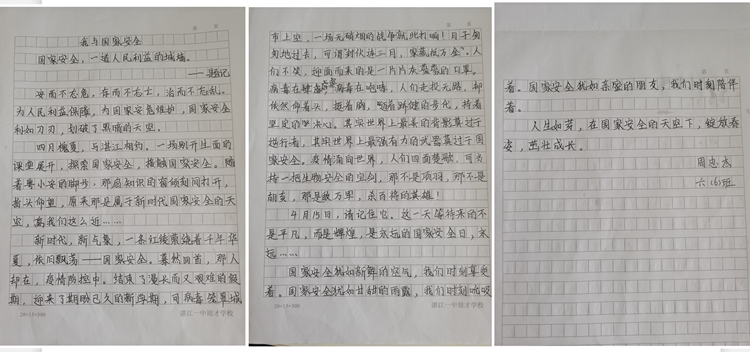 我与国家安全
国家安全,一道人民利益的城墙。
——题记
安而不忘危,存而不忘亡,治而不忘乱。
为人民利益保障,为国家安危维护,国家安全
利如刀刃,划破了黑暗的天空。
四月槐夏,与湛江相约,一场别开生面的
课堂展开,探索国家安全,接触国家安全。随
着粤小安的脚步,那扇知识的窗倾刻间打开,
抬头仰望,原来那是属于新时代国家安全的天
空,离我们这么近……
新时代,新气象,一条红线萦绕着千年华
夏,依旧飘荡——国家安全。蓦然回首,那人
却在,疫情防控中。结束了漫长而又艰难的假
期,迎来了期盼已久的新学期,可病毒笼罩城
20×15=300
湛江一中培才学校
市上空,一场无硝烟的战争就此打响!日子匆
匆地过去,可谓封伏连三月,家藏放万金。人
们不笑,迎面而来的是一片片灰蒙蒙的口罩。
病毒在肆虐,病毒在咆哮,人们走投无路,却
依然仰着头,挺着胸,迈着矫健的步伐,持着
坚定的决心。其实世界上最美的背影莫过于
逆行者,其实世界上最强有力的武器莫过于国
家安全。疫情面向世界,人们四面楚歌,可当
持一把生物安全的宝剑,那不是项羽,那不是
胡亥,那是敌万军,杀百将的英雄!
4月15日,请记住它,这一天等待来的不
是平凡,而是辉煌,是永远的国家安全日,永
远……
国家安全就如新鲜的空气,我们时刻享受
着。国家安全犹如甘甜的雨露,我们时刻吮吸
20×15=300
湛江一中培才学校
着。国家安全犹如亲密的朋友,我们时刻陪伴
着。
人生如芽,在国家安全的天空下,绽放春
姿,茁壮成长。
周忠杰
六(6)班